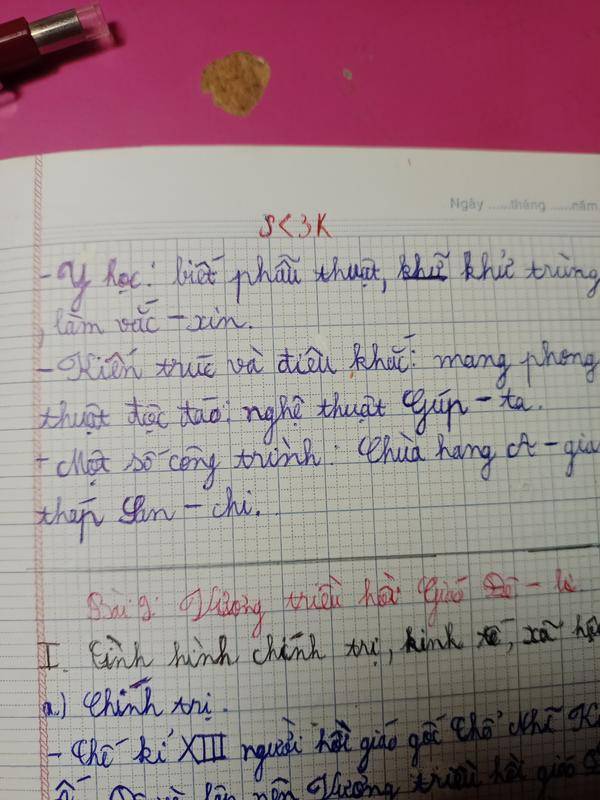 Ngày ......tháng ......năm
S<3K
- Y học: biết phẫu thuật, khử khử trùng
, làm vắc - xin.
- Kiến trúc và điêu khắc: mang phong
thuật độc đáo: nghệ thuật Gúp - ta.
+ Một số công trình: Chùa hang A - gia
tháp San - chi.
Bài 9: Vương triều hồi Giáo Đê - li
I. Tình hình chính trị, kinh tế, xã hội
a) Chính trị.
- Thế kỉ XIII người hồi giáo gốc Thổ Nhĩ K
lập nên Vương triều hồi giáo